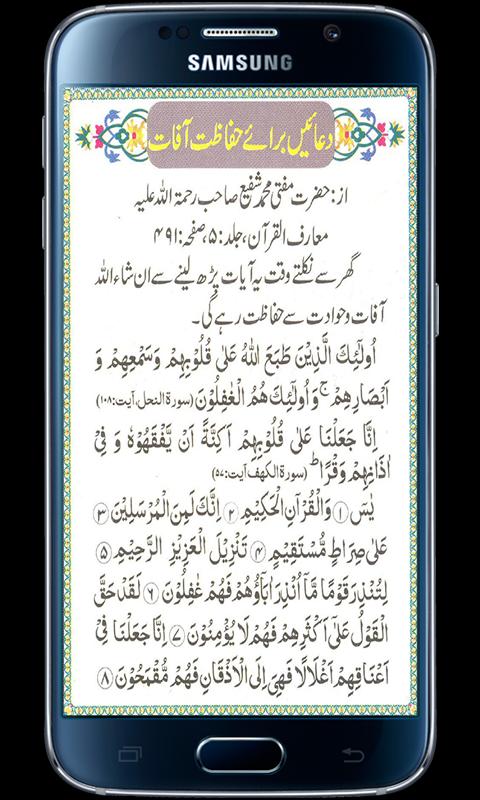 SAMSUNG
دعائیں برائے حفاظت آفات
از: حضرت مفتی محمد شفیع صاحب رحمۃ اللہ علیہ
معارف القرآن، جلد: ۵، صفحہ: ۴۹۱
گھر سے نکلتے وقت یہ آیات پڑھ لینے سے ان شاء اللہ
آفات و حوادث سے حفاظت رہے گی۔
اُولٰٓئِكَ الَّذِيْنَ طَبَعَ اللّٰهُ عَلٰى قُلُوْبِهِمْ وَسَمْعِهِمْ وَ
اَبْصَارِهِمْ ۚ وَاُولٰٓئِكَ هُمُ الْغٰفِلُوْنَ (سورة النحل، آیت: ۱۰۸)
اِنَّا جَعَلْنَا عَلٰى قُلُوْبِهِمْ اَكِنَّةً اَنْ يَّفْقَهُوْهُ وَ فِيْٓ
اٰذَانِهِمْ وَقْرًا ؕ (سورة الكهف، آیت: ۵۷)
يٰسٓ ۱ وَالْقُرْاٰنِ الْحَكِيْمِ ۲ اِنَّكَ لَمِنَ الْمُرْسَلِيْنَ ۳
عَلٰى صِرَاطٍ مُّسْتَقِيْمٍ ۴ تَنْزِيْلَ الْعَزِيْزِ الرَّحِيْمِ ۵
لِتُنْذِرَ قَوْمًا مَّآ اُنْذِرَ اٰبَآؤُهُمْ فَهُمْ غٰفِلُوْنَ ۶ لَقَدْ حَقَّ
الْقَوْلُ عَلٰٓى اَكْثَرِهِمْ فَهُمْ لَا يُؤْمِنُوْنَ ۷ اِنَّا جَعَلْنَا فِيْٓ
اَعْنَاقِهِمْ اَغْلٰلًا فَهِىَ اِلَى الْاَذْقَانِ فَهُمْ مُّقْمَحُوْنَ ۸